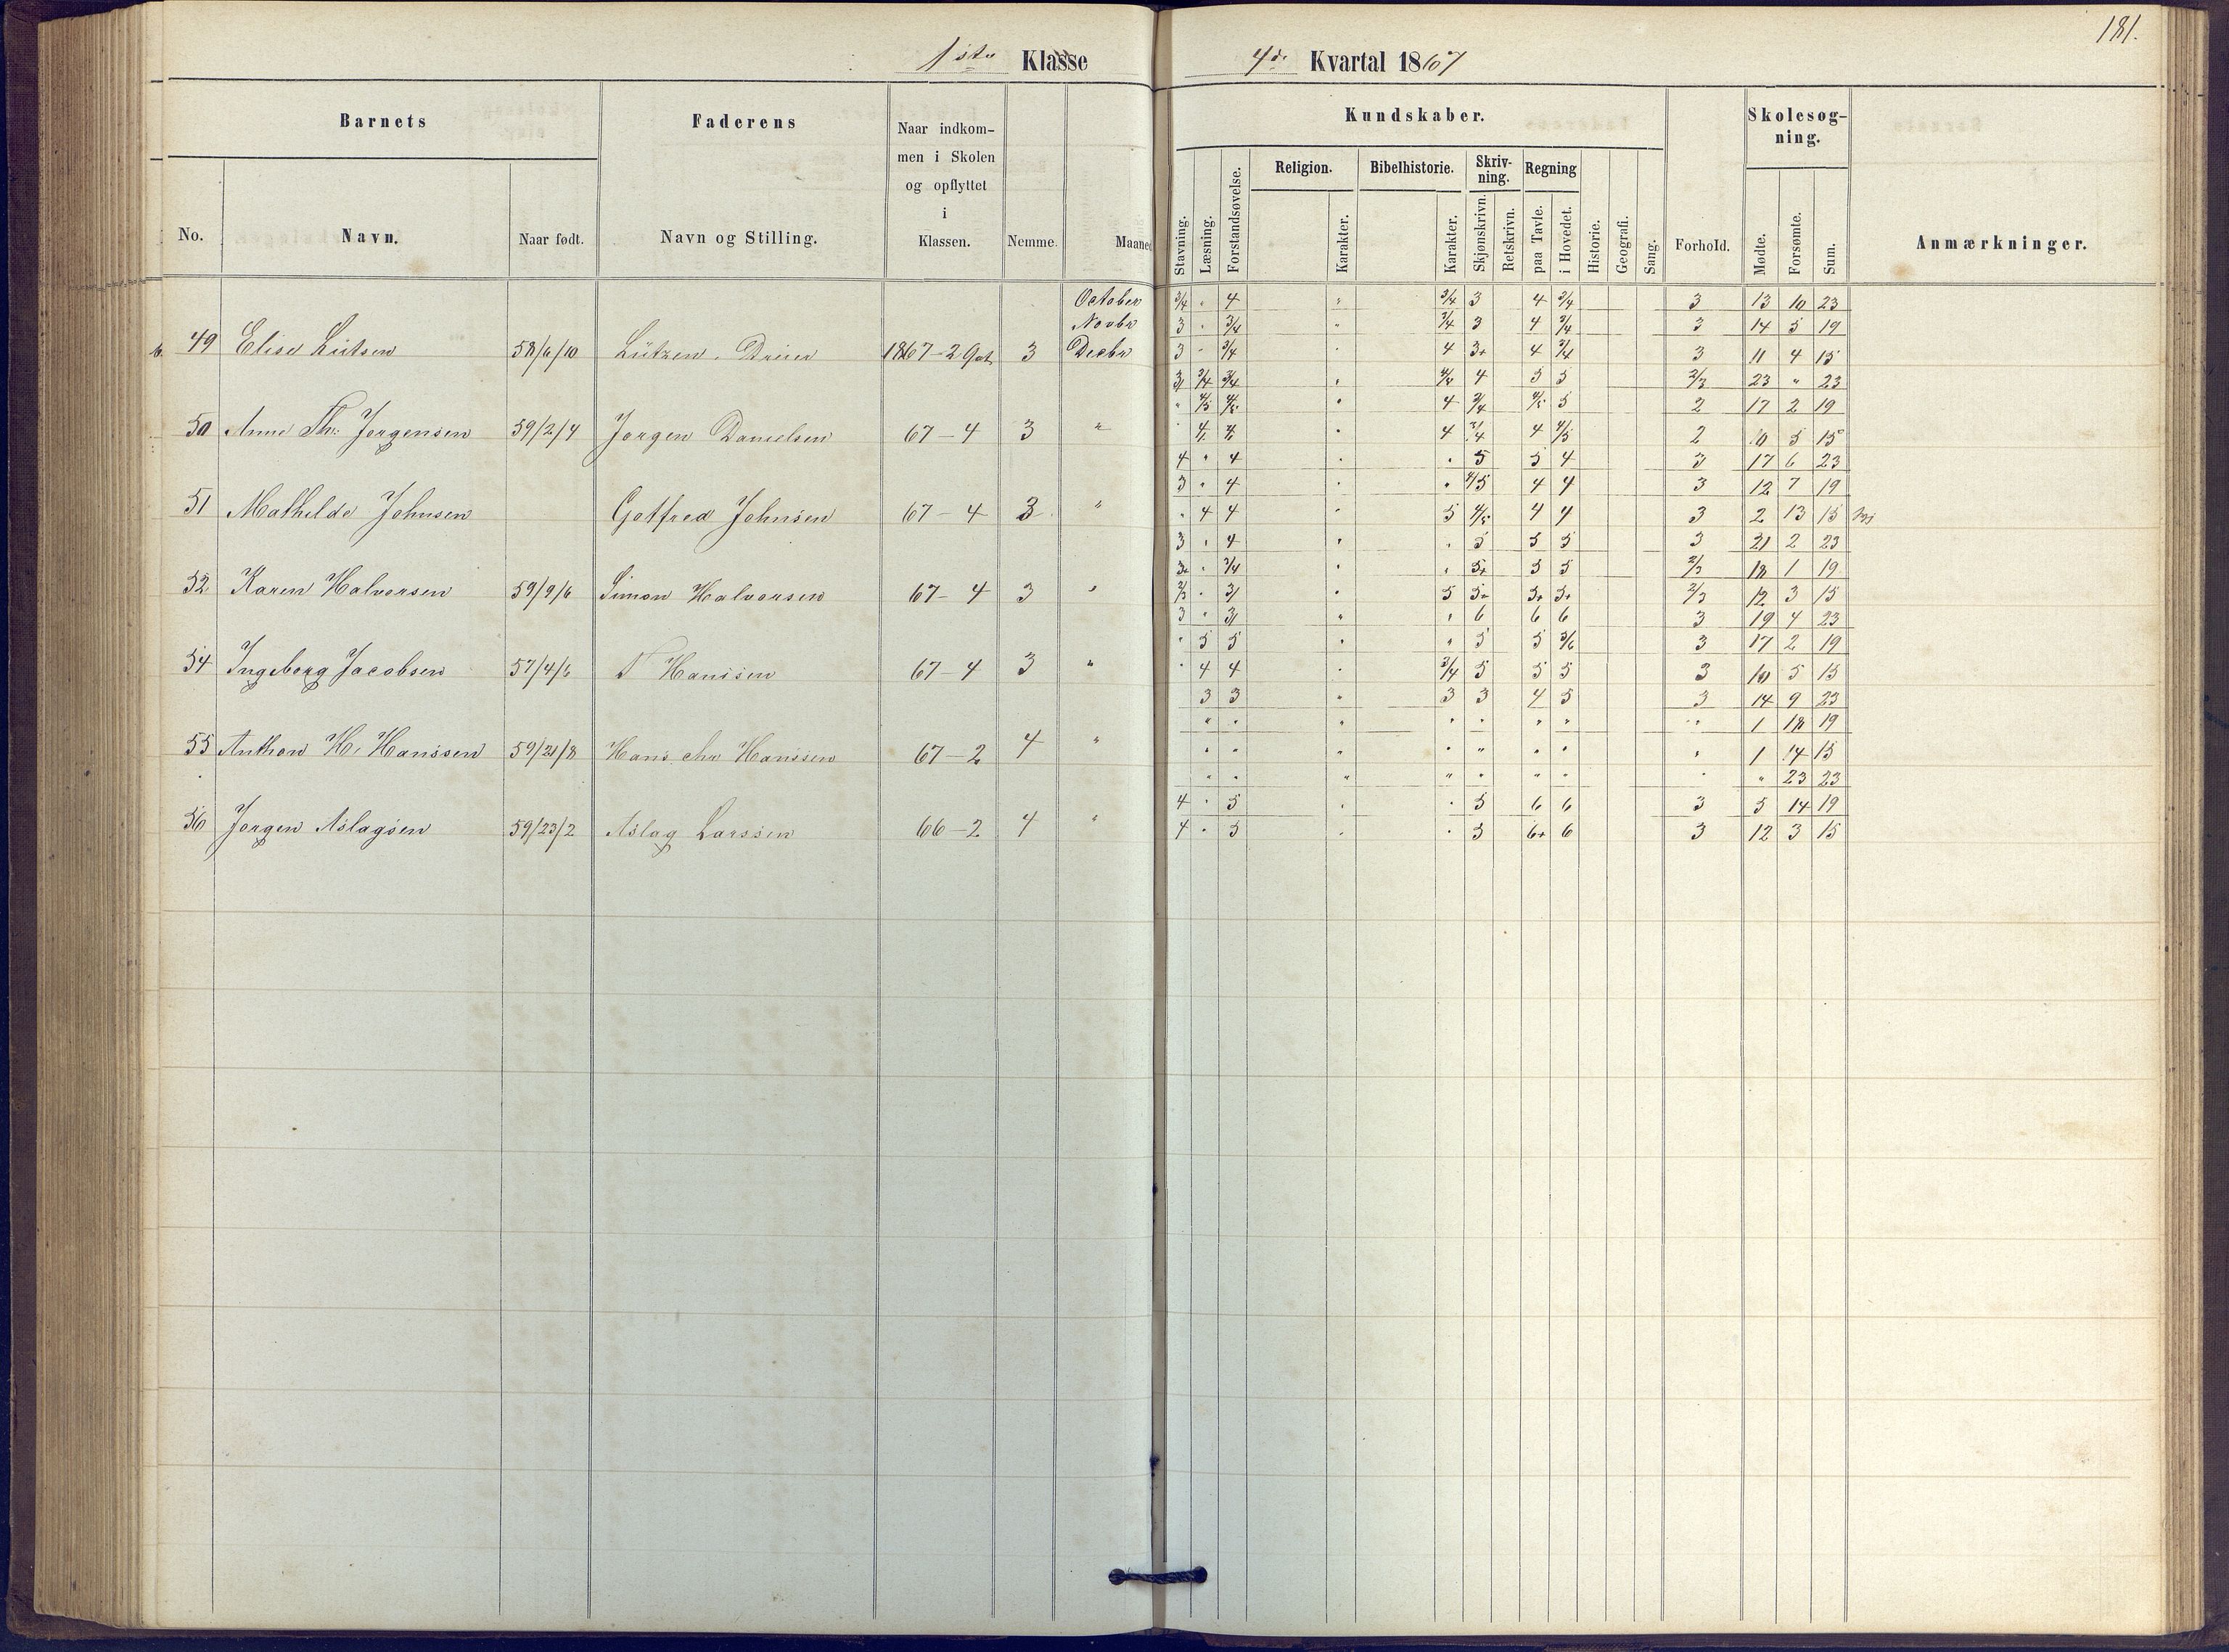 181.
1ste Klasse 4de Kvartal 1867
Barnets Faderens Naar indkommen i Skolen og opflyttet i Klassen. Nemme. Maaned Kundskaber. Forhold. Skolesøgning. Anmærkninger.
No. Navn. Naar født. Navn og Stilling. Stavning. Læsning. Forstandsøvelse. Religion. Karakter. Bibelhistorie. Karakter. Skrivning. Skjønskrivn. Retskrivn. Regning paa Tavle. i Hovedet. Historie. Geografi. Sang. Mødte. Forsømte. Sum.
October 3/4 " 4 " 3/4 3 4 3/4 3 13 10 23
Novbr 3 " 3/4 " 3/4 3 4 3/4 3 14 5 19
49 Elise Lütsen 58/6/10 Lützen. 1867-2 Qat 3 Decbr 3 " 3/4 " 4 3+ 4 3/4 3 11 4 15
3/4 3/4 " 4 5 5 2/3 23 " 23
" 4/5 4/5 " 4 3/4 4/5 5 2 17 2 19
50 Anne Th: Jorgensen 59/2/4 Jorgen Danielsen 67-4 3 " " 4 4 " 4 3/4 4 4/5 2 10 5 15
4 " 4 " " 5 5 4 3 17 6 23
3 " 4 " " 4/5 4 4 3 12 7 19
51 Mathilde Johnsen Gotfred Johnsen 67-4 3 " " 4 4 " 5 4/5 4 4 3 2 13 15
3 " 4 " " 5 5 5 3 21 2 23
3+ " 3/4 " " 5+ 5 5 2/3 18 1 19
52 Karen Halvorsen 59/9/6 Simon Halvorsen 67-4 3 " 2/3 " 3/ " 5 5+ 5+ 5+ 2/3 12 3 15
3 " 3/ " " 6 6 6 3 19 4 23
" 5 5 " " 5 5 5/6 3 17 2 19
54 Ingeborg Jacobsen 57/4/6 Hanssen 67-4 3 " " 4 4 " 3/4 5 5 5 3 10 5 15
3 3 " 3 3 4 5 3 14 9 23
" " " " " " " " 1 18 19
55 Anthon H. Hanssen 59/21/8 Hans Chr Hanssen 67-2 4 " " " " " " " " " 1 14 15
" " " " " " " " " 23 23
4 " 5 " " 5 6 6 3 5 14 19
56 Jorgen Aslagsen 59/23/2 Aslag Larssen 66-2 4 " 4 " 5 " " 5 6+ 6 3 12 3 15